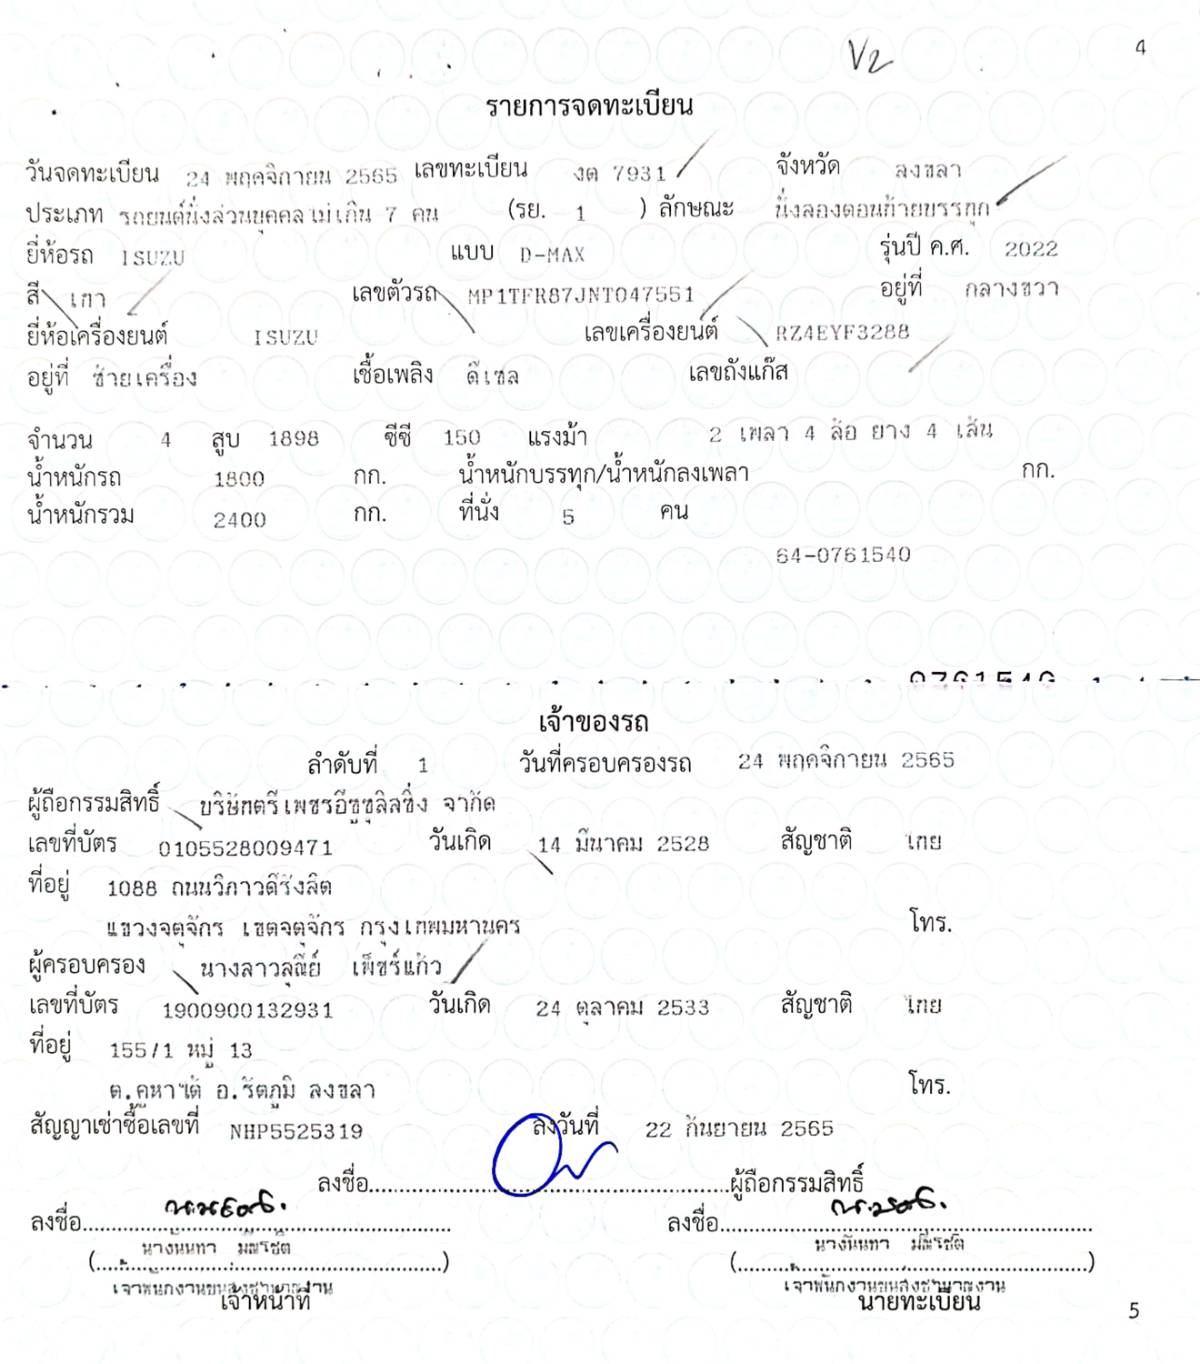 V2
4
รายการจดทะเบียน
วันจดทะเบียน 24 พฤศจิกายน 2565 เลขทะเบียน งต 7931 จังหวัด สงขลา
ประเภท รถยนต์นั่งส่วนบุคคลไม่เกิน 7 คน (รย. 1 ) ลักษณะ นั่งสองตอนท้ายบรรทุก
ยี่ห้อรถ ISUZU แบบ D-MAX รุ่นปี ค.ศ. 2022
สี เทา เลขตัวรถ MP1TFR87JNT047551 อยู่ที่ กลางขวา
ยี่ห้อเครื่องยนต์ ISUZU เลขเครื่องยนต์ RZ4EYF3288
อยู่ที่ ซ้ายเครื่อง เชื้อเพลิง ดีเซล เลขถังแก๊ส
จำนวน 4 สูบ 1898 ซีซี 150 แรงม้า 2 เพลา 4 ล้อ ยาง 4 เส้น
น้ำหนักรถ 1800 กก. น้ำหนักบรรทุก/น้ำหนักลงเพลา กก.
น้ำหนักรวม 2400 กก. ที่นั่ง 5 คน
64-0761540
0761540
เจ้าของรถ
ลำดับที่ 1 วันที่ครอบครองรถ 24 พฤศจิกายน 2565
ผู้ถือกรรมสิทธิ์ บริษัทตรีเพชรอีซูซุลิสซิ่ง จำกัด
เลขที่บัตร 0105528009471 วันเกิด 14 มีนาคม 2528 สัญชาติ ไทย
ที่อยู่ 1088 ถนนวิภาวดีรังสิต
แขวงจตุจักร เขตจตุจักร กรุงเทพมหานคร โทร.
ผู้ครอบครอง นางสาวสุณีย์ เพ็ชร์แก้ว
เลขที่บัตร 1900900132931 วันเกิด 24 ตุลาคม 2533 สัญชาติ ไทย
ที่อยู่ 155/1 หมู่ 13
ต.คูหาใต้ อ.รัตภูมิ สงขลา โทร.
สัญญาเช่าซื้อเลขที่ NHP5525319 ลงวันที่ 22 กันยายน 2565
ลงชื่อ.....ผู้ถือกรรมสิทธิ์
ลงชื่อ..... ลงชื่อ.....
นางนันทา มณีโชติ นางนันทา มณีโชติ
(.....) (.....)
เจ้าพนักงานขนส่งชำนาญงาน เจ้าพนักงานขนส่งชำนาญงาน
เจ้าหน้าที่ นายทะเบียน
5